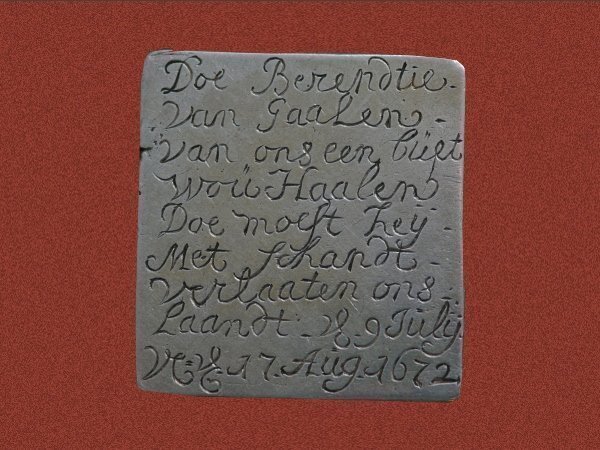 Doe Berendtie
van Gaalen
van ons een büet
woü Haalen
Doe moest hey
Met schandt
verlaaten ons
Laandt 9 Iulij
17 Aug 1672